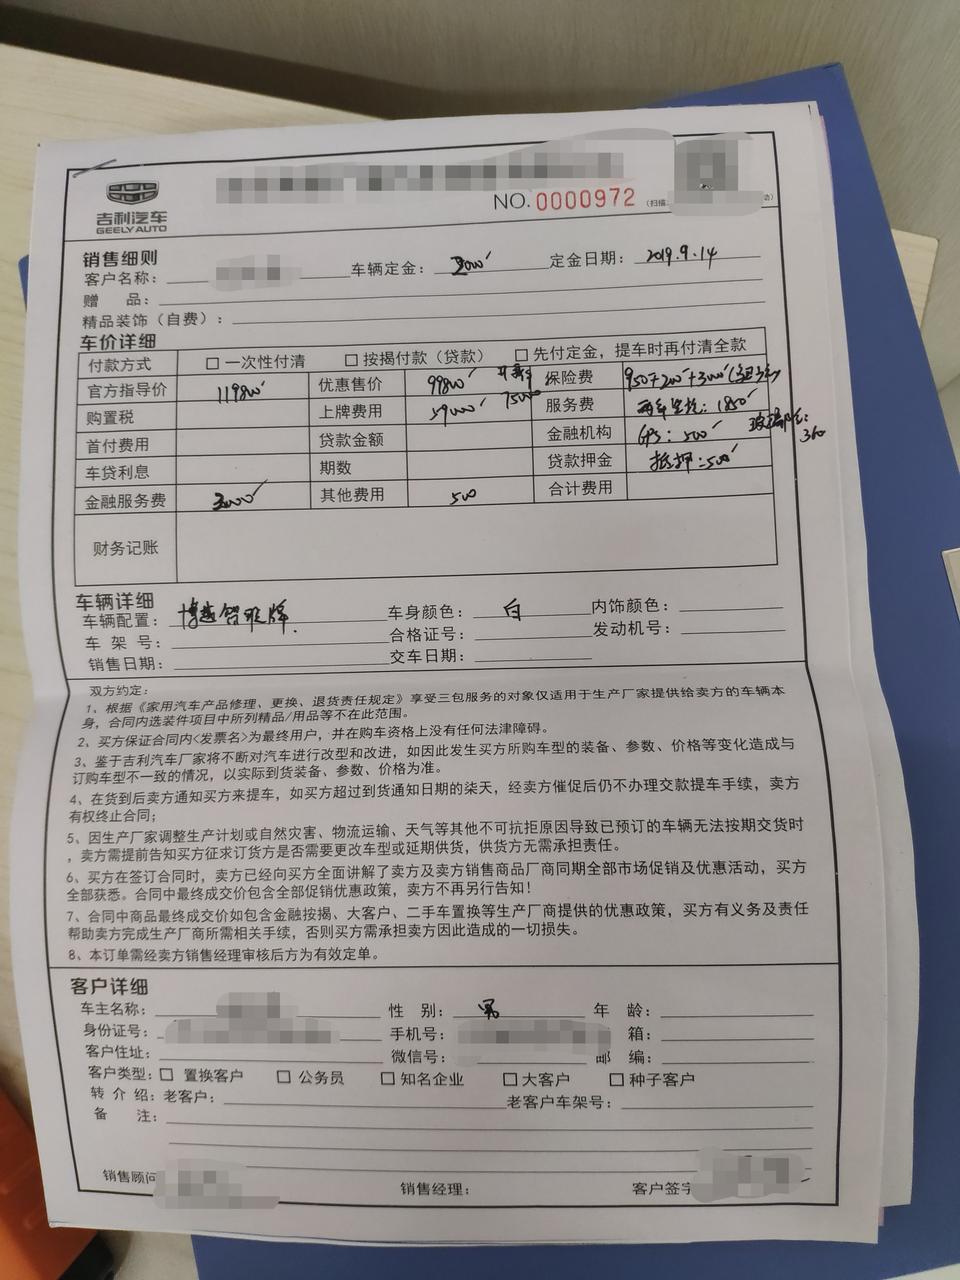 吉利汽车
GEELY AUTO
NO. 0000972
(扫描
销售细则
客户名称： 车辆定金：2000 定金日期：2019.9.14
赠 品：
精品装饰（自费）：
车价详细
付款方式 □ 一次性付清 □ 按揭付款（贷款） □ 先付定金，提车时再付清全款
官方指导价 119800 优惠售价 99800 保险费 950+200+3000
购置税 上牌费用 服务费 1850
首付费用 贷款金额 金融机构 GPS：500
360
车贷利息 期数 贷款押金 抵押：500
金融服务费 3000 其他费用 500 合计费用
财务记账
车辆详细
车辆配置：博越智联牌 车身颜色：白 内饰颜色：
车 架 号： 合格证号： 发动机号：
销售日期： 交车日期：
双方约定：
1、根据《家用汽车产品修理、更换、退货责任规定》享受三包服务的对象仅适用于生产厂家提供给卖方的车辆本
身，合同内选装件项目中所列精品/用品等不在此范围。
2、买方保证合同内<发票名>为最终用户，并在购车资格上没有任何法律障碍。
3、鉴于吉利汽车厂家将不断对汽车进行改型和改进，如因此发生买方所购车型的装备、参数、价格等变化造成与
订购车型不一致的情况，以实际到货装备、参数、价格为准。
4、在货到后卖方通知买方来提车，如买方超过到货通知日期的柒天，经卖方催促后仍不办理交款提车手续，卖方
有权终止合同；
5、因生产厂家调整生产计划或自然灾害、物流运输、天气等其他不可抗拒原因导致已预订的车辆无法按期交货时
，卖方需提前告知买方征求订货方是否需要更改车型或延期供货，供货方无需承担责任。
6、买方在签订合同时，卖方已经向买方全面讲解了卖方及卖方销售商品厂商同期全部市场促销及优惠活动，买方
全部获悉。合同中最终成交价包含全部促销优惠政策，卖方不再另行告知！
7、合同中商品最终成交价如包含金融按揭、大客户、二手车置换等生产厂商提供的优惠政策，买方有义务及责任
帮助卖方完成生产厂商所需相关手续，否则买方需承担卖方因此造成的一切损失。
8、本订单需经卖方销售经理审核后方为有效定单。
客户详细
车主名称： 性 别：男 年 龄：
身份证号： 手机号： 箱：
客户住址： 微信号： 邮 编：
客户类型：□ 置换客户 □ 公务员 □ 知名企业 □ 大客户 □ 种子客户
转 介 绍：老客户： 老客户车架号：
备 注：
销售顾问 销售经理： 客户签字